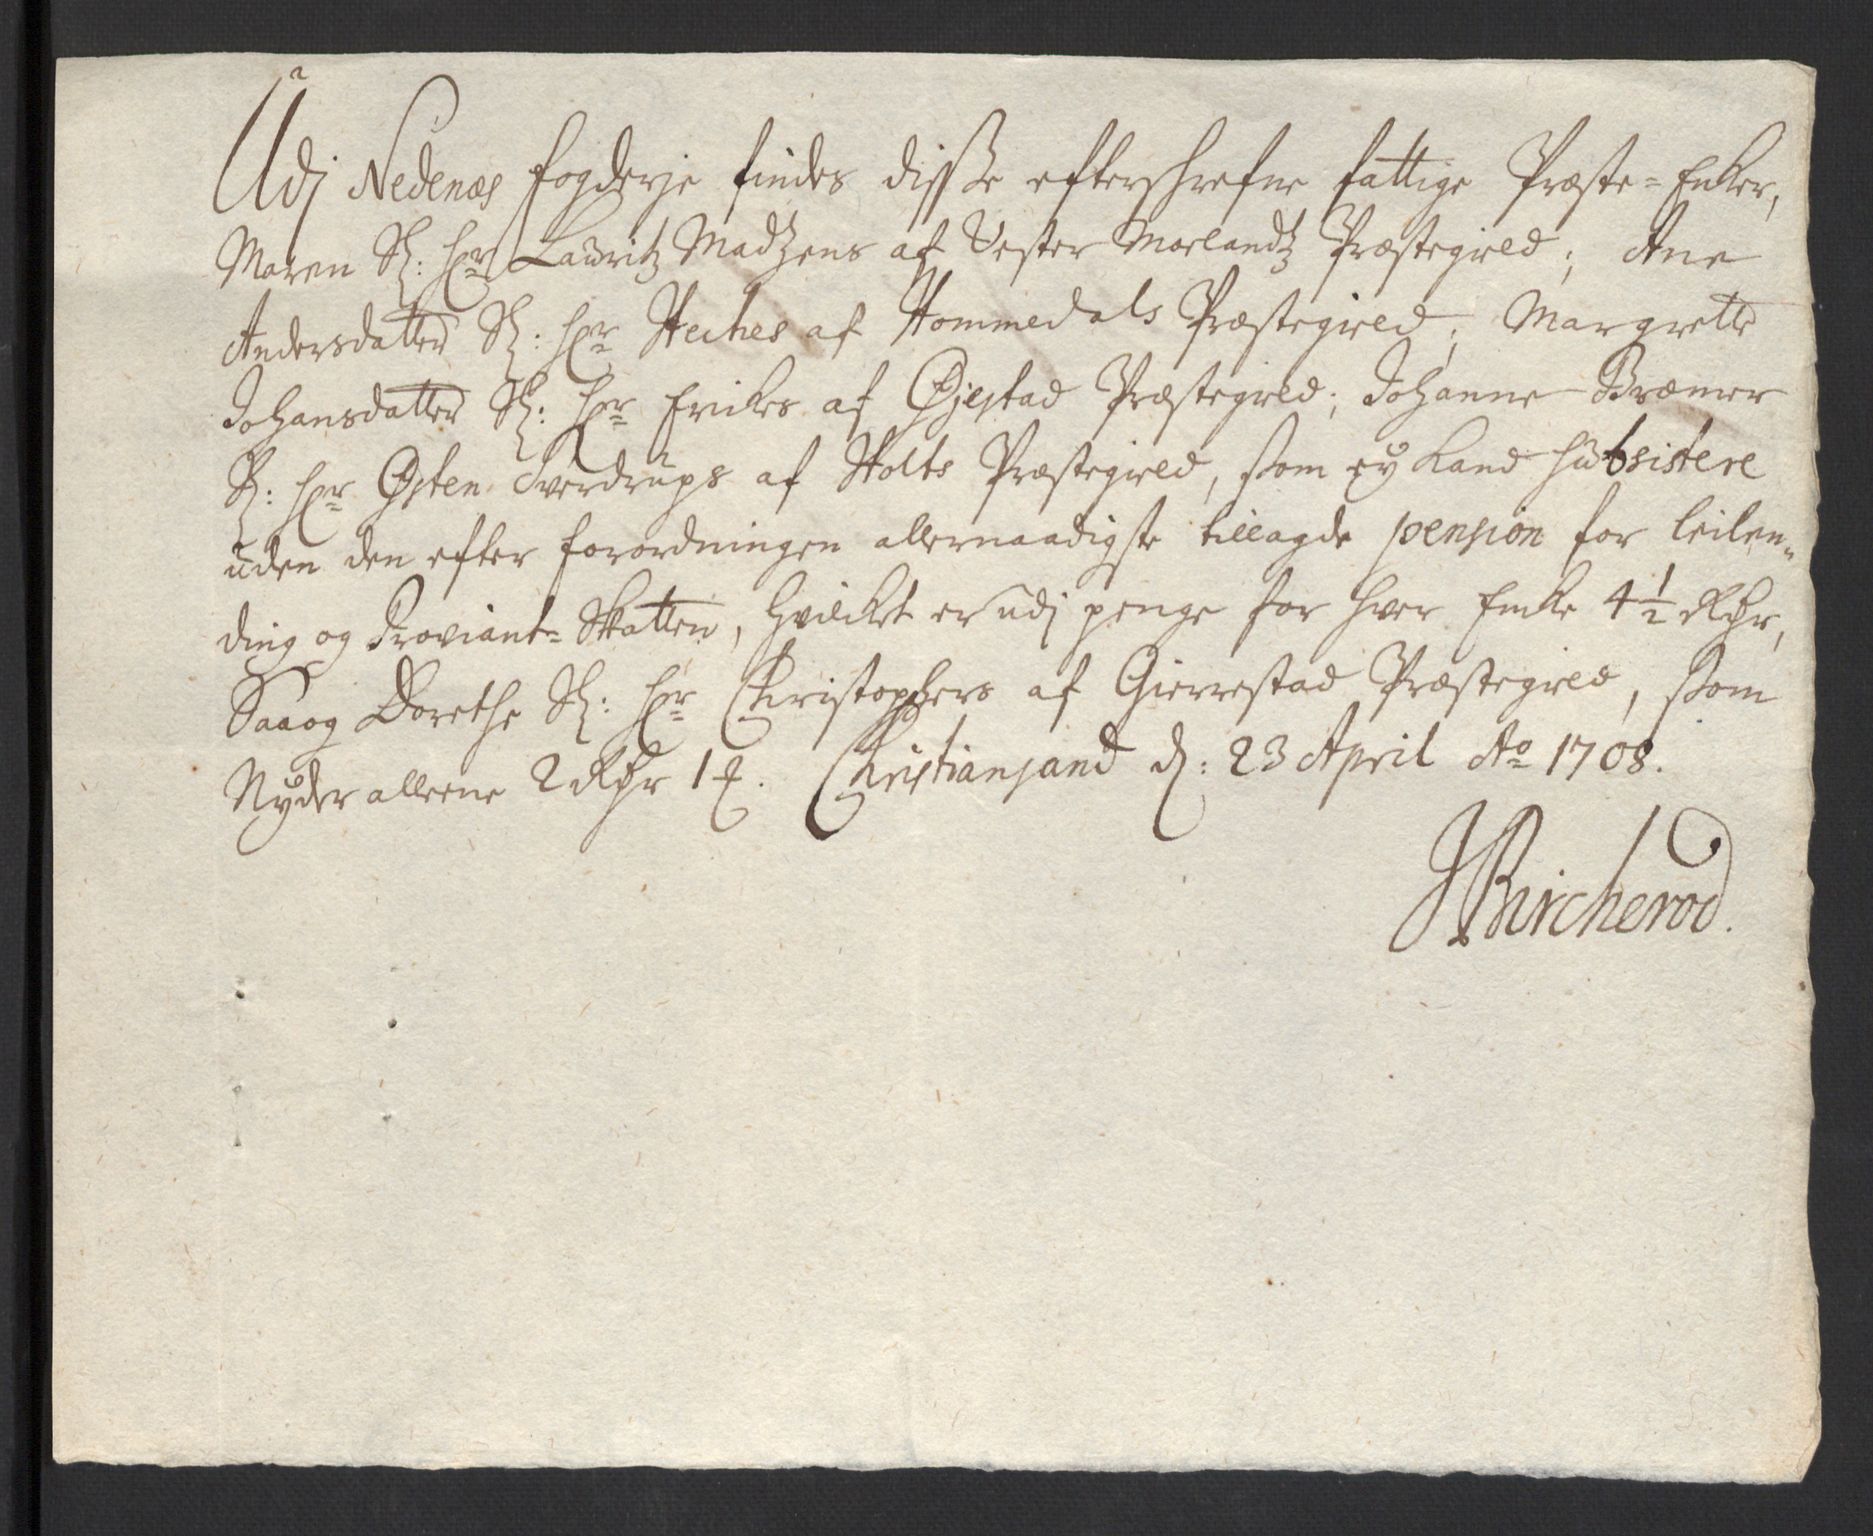 Udj Nedenæs Fogderje findes disse efterskrefne fattige Præste-Enker,
Maren Sl: Hr Lauritz Madzens af Vester Morlandz Præstegield; Ane
Andersdatter Sl: Hr Heches af Hommedals Præstegield; Margrette
Johansdatter Sl: Hr Eriks af Øjestad Præstegield; Johanne Bræmer
Sl: Hr Østen Sverdrups af Holts Præstegield, som ey kand subsistere
uden den efter forordningen allernaadigste tillagde pension for leilen-
ding og Proviant-Skatten, hvilket er udj penge for hver Encke 4 1/2 Rdr,
Saaog Dorethe Sl: Hr Christophers af Gierrestad Præstegield, som
Nyder alleene 2 Rdr 1 . Christiansand d: 23 April Ao 1708.
JBircherod.